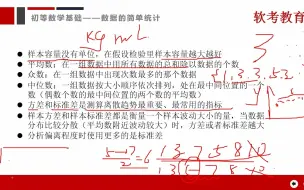 初等数学基础——数据的简单统计
软考教育
kg mL
样本容量没有单位，在假设检验里样本容量越大越好
平均数：在一组数据中用所有数据的总和除以数据的个数
众数：在一组数据中出现次数最多的那个数据
中位数：一组数据按大小顺序依次排列，处在最中间位置的一个数（偶数个数的最中间位置的两个数的平均）
方差和标准差是测算离散趋势最重要、最常用的指标
样本方差和样本标准差都是衡量一个样本波动大小的量，当数据分布比较分散（平均数附近波动较大）时，方差或者标准差越大
分析偏离程度时使用更多的是标准差